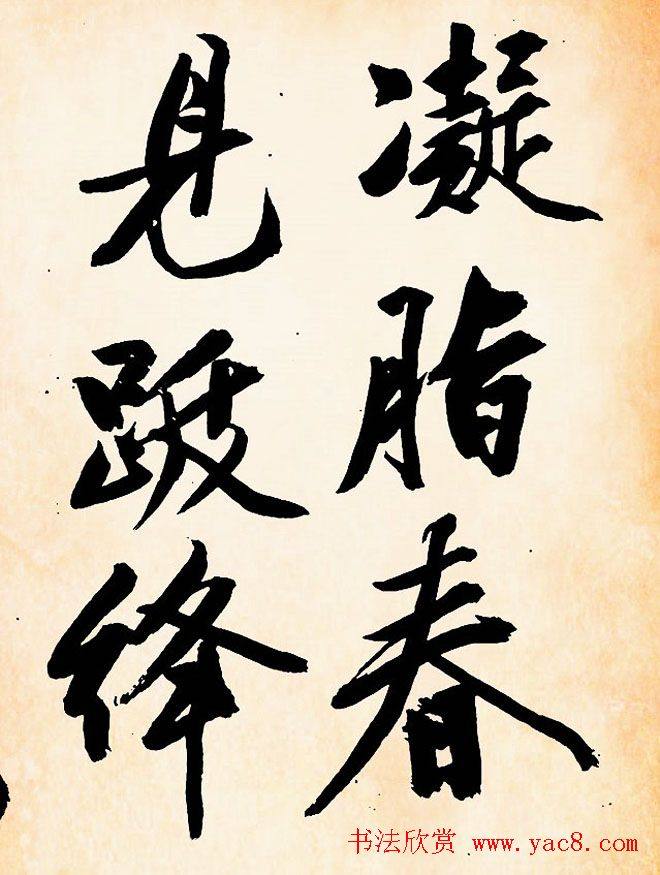 凝脂春
见跋绛
书法欣赏 www.yac8.com